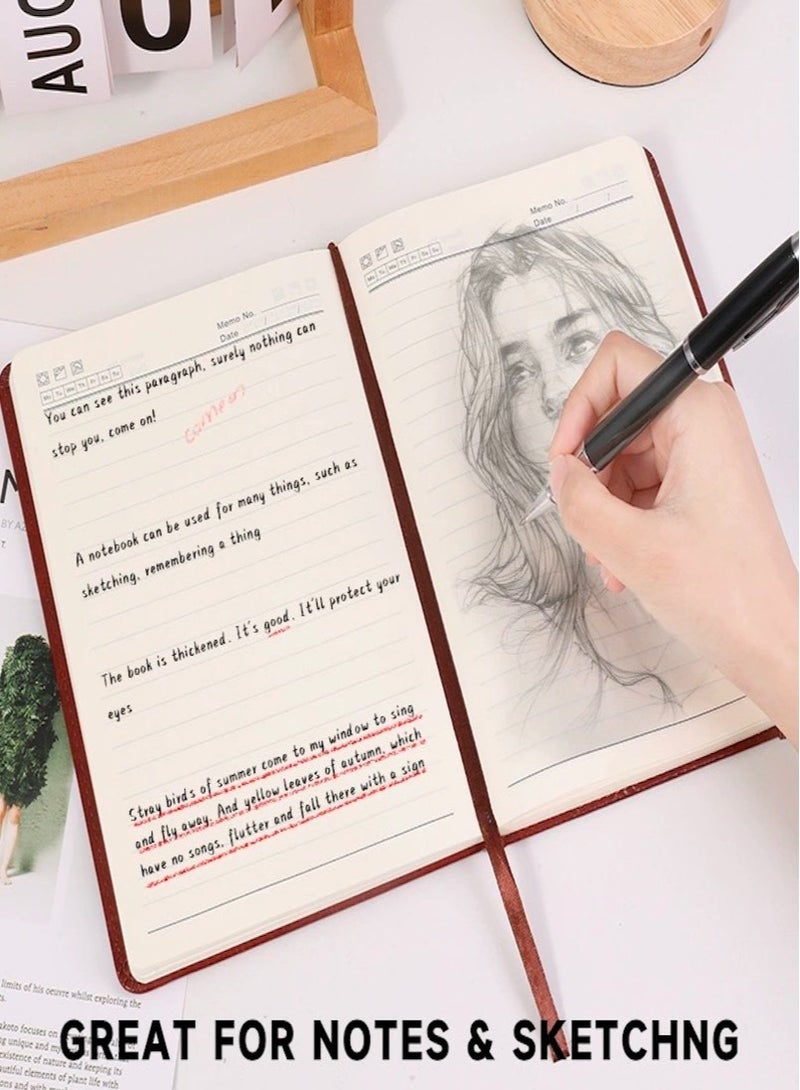 AUG
0
Memo No.
Date / /
Mo Tu We Th Fr Sa Su
You can see this paragraph, surely nothing can
stop you, come on!
come on
A notebook can be used for many things, such as
sketching, remembering a thing
The book is thickened. It's good. It'll protect your
eyes
Stray birds of summer come to my window to sing
and fly away. And yellow leaves of autumn, which
have no songs, flutter and fall there with a sign
Memo No.
Date / /
Mo Tu We Th Fr Sa Su
limits of his oeuvre whilst exploring the
akoto focuses on
unique and my
existence of nature and keeping its
autiful elements of plant life with
GREAT FOR NOTES & SKETCHNG